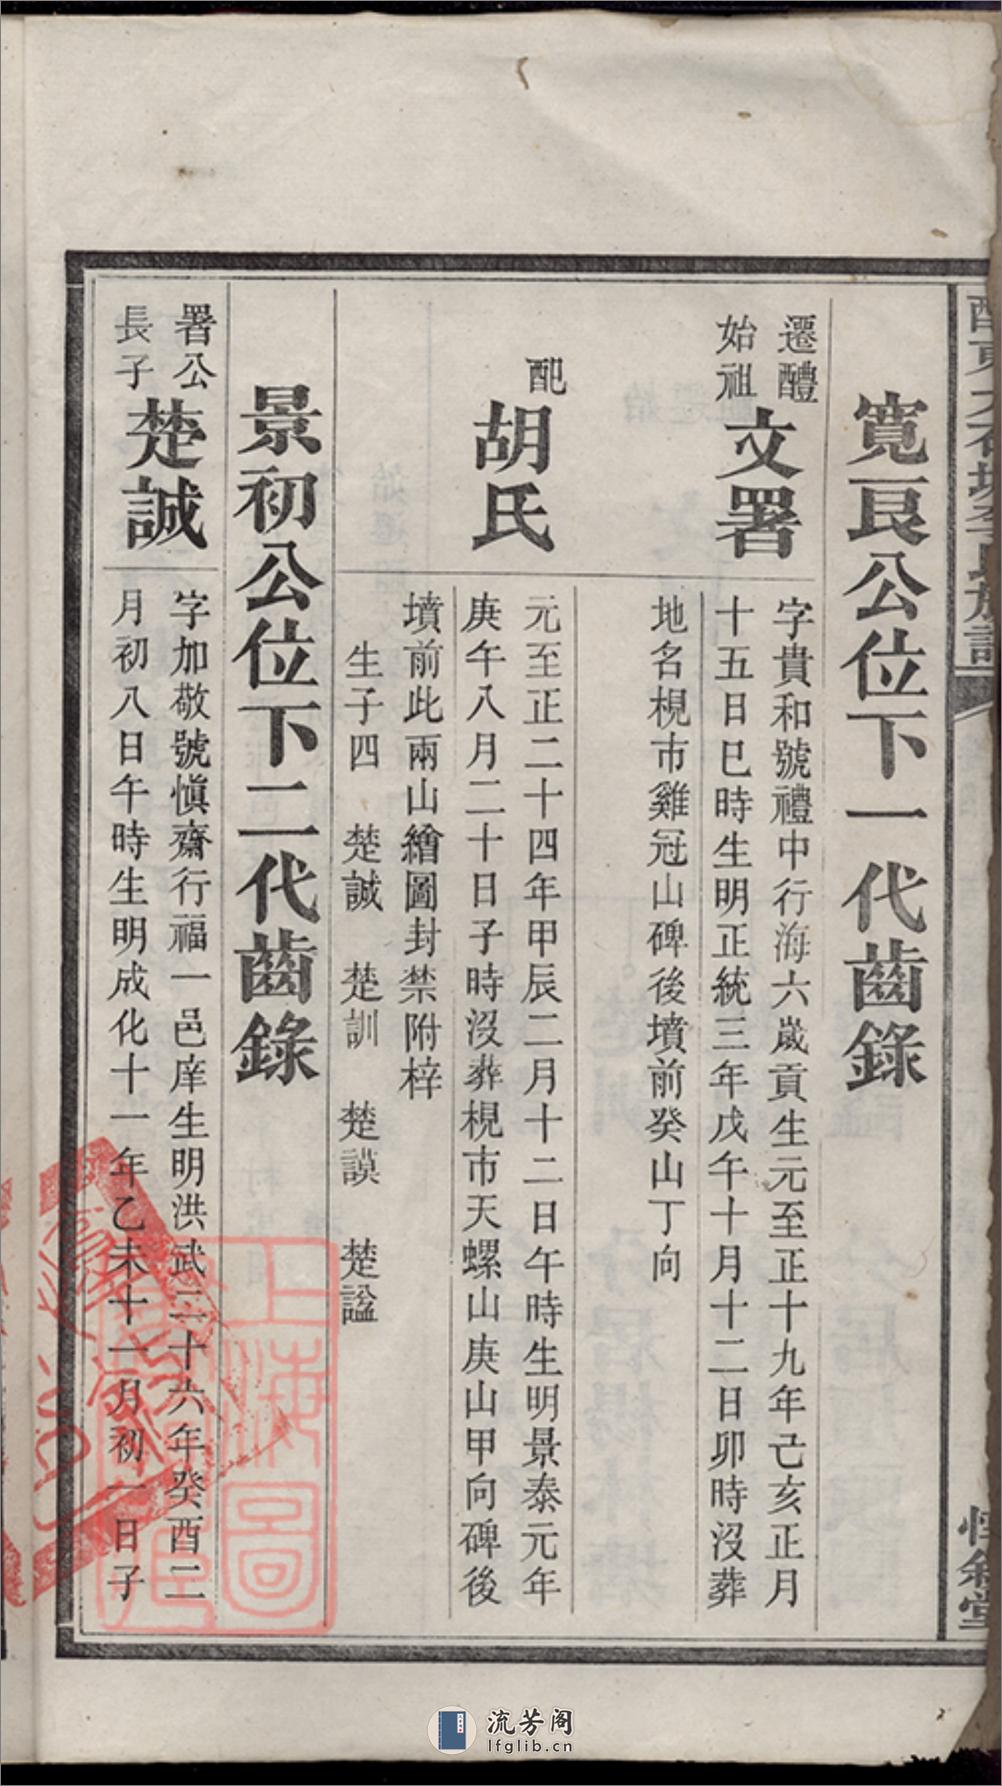 寬艮公位下一代齒錄
遷醴
始祖
文署
字貴和號禮中行海六歲貢生元至正十九年己亥正月
十五日巳時生明正統三年戊午十月十二日卯時沒葬
地名梘市雞冠山碑後墳前癸山丁向
配
胡氏
元至正二十四年甲辰二月十二日午時生明景泰元年
庚午八月二十日子時沒葬梘市天螺山庚山甲向碑後
墳前此兩山繪圖封禁附梓
生子四 楚誠 楚訓 楚謨 楚諡
景初公位下二代齒錄
署公
長子
楚誠
字加敬號慎齋行福一邑庠生明洪武二十六年癸酉二
月初八日午時生明成化十一年乙未十一月初一日子
上海圖
流芳閣
lfglib.cn